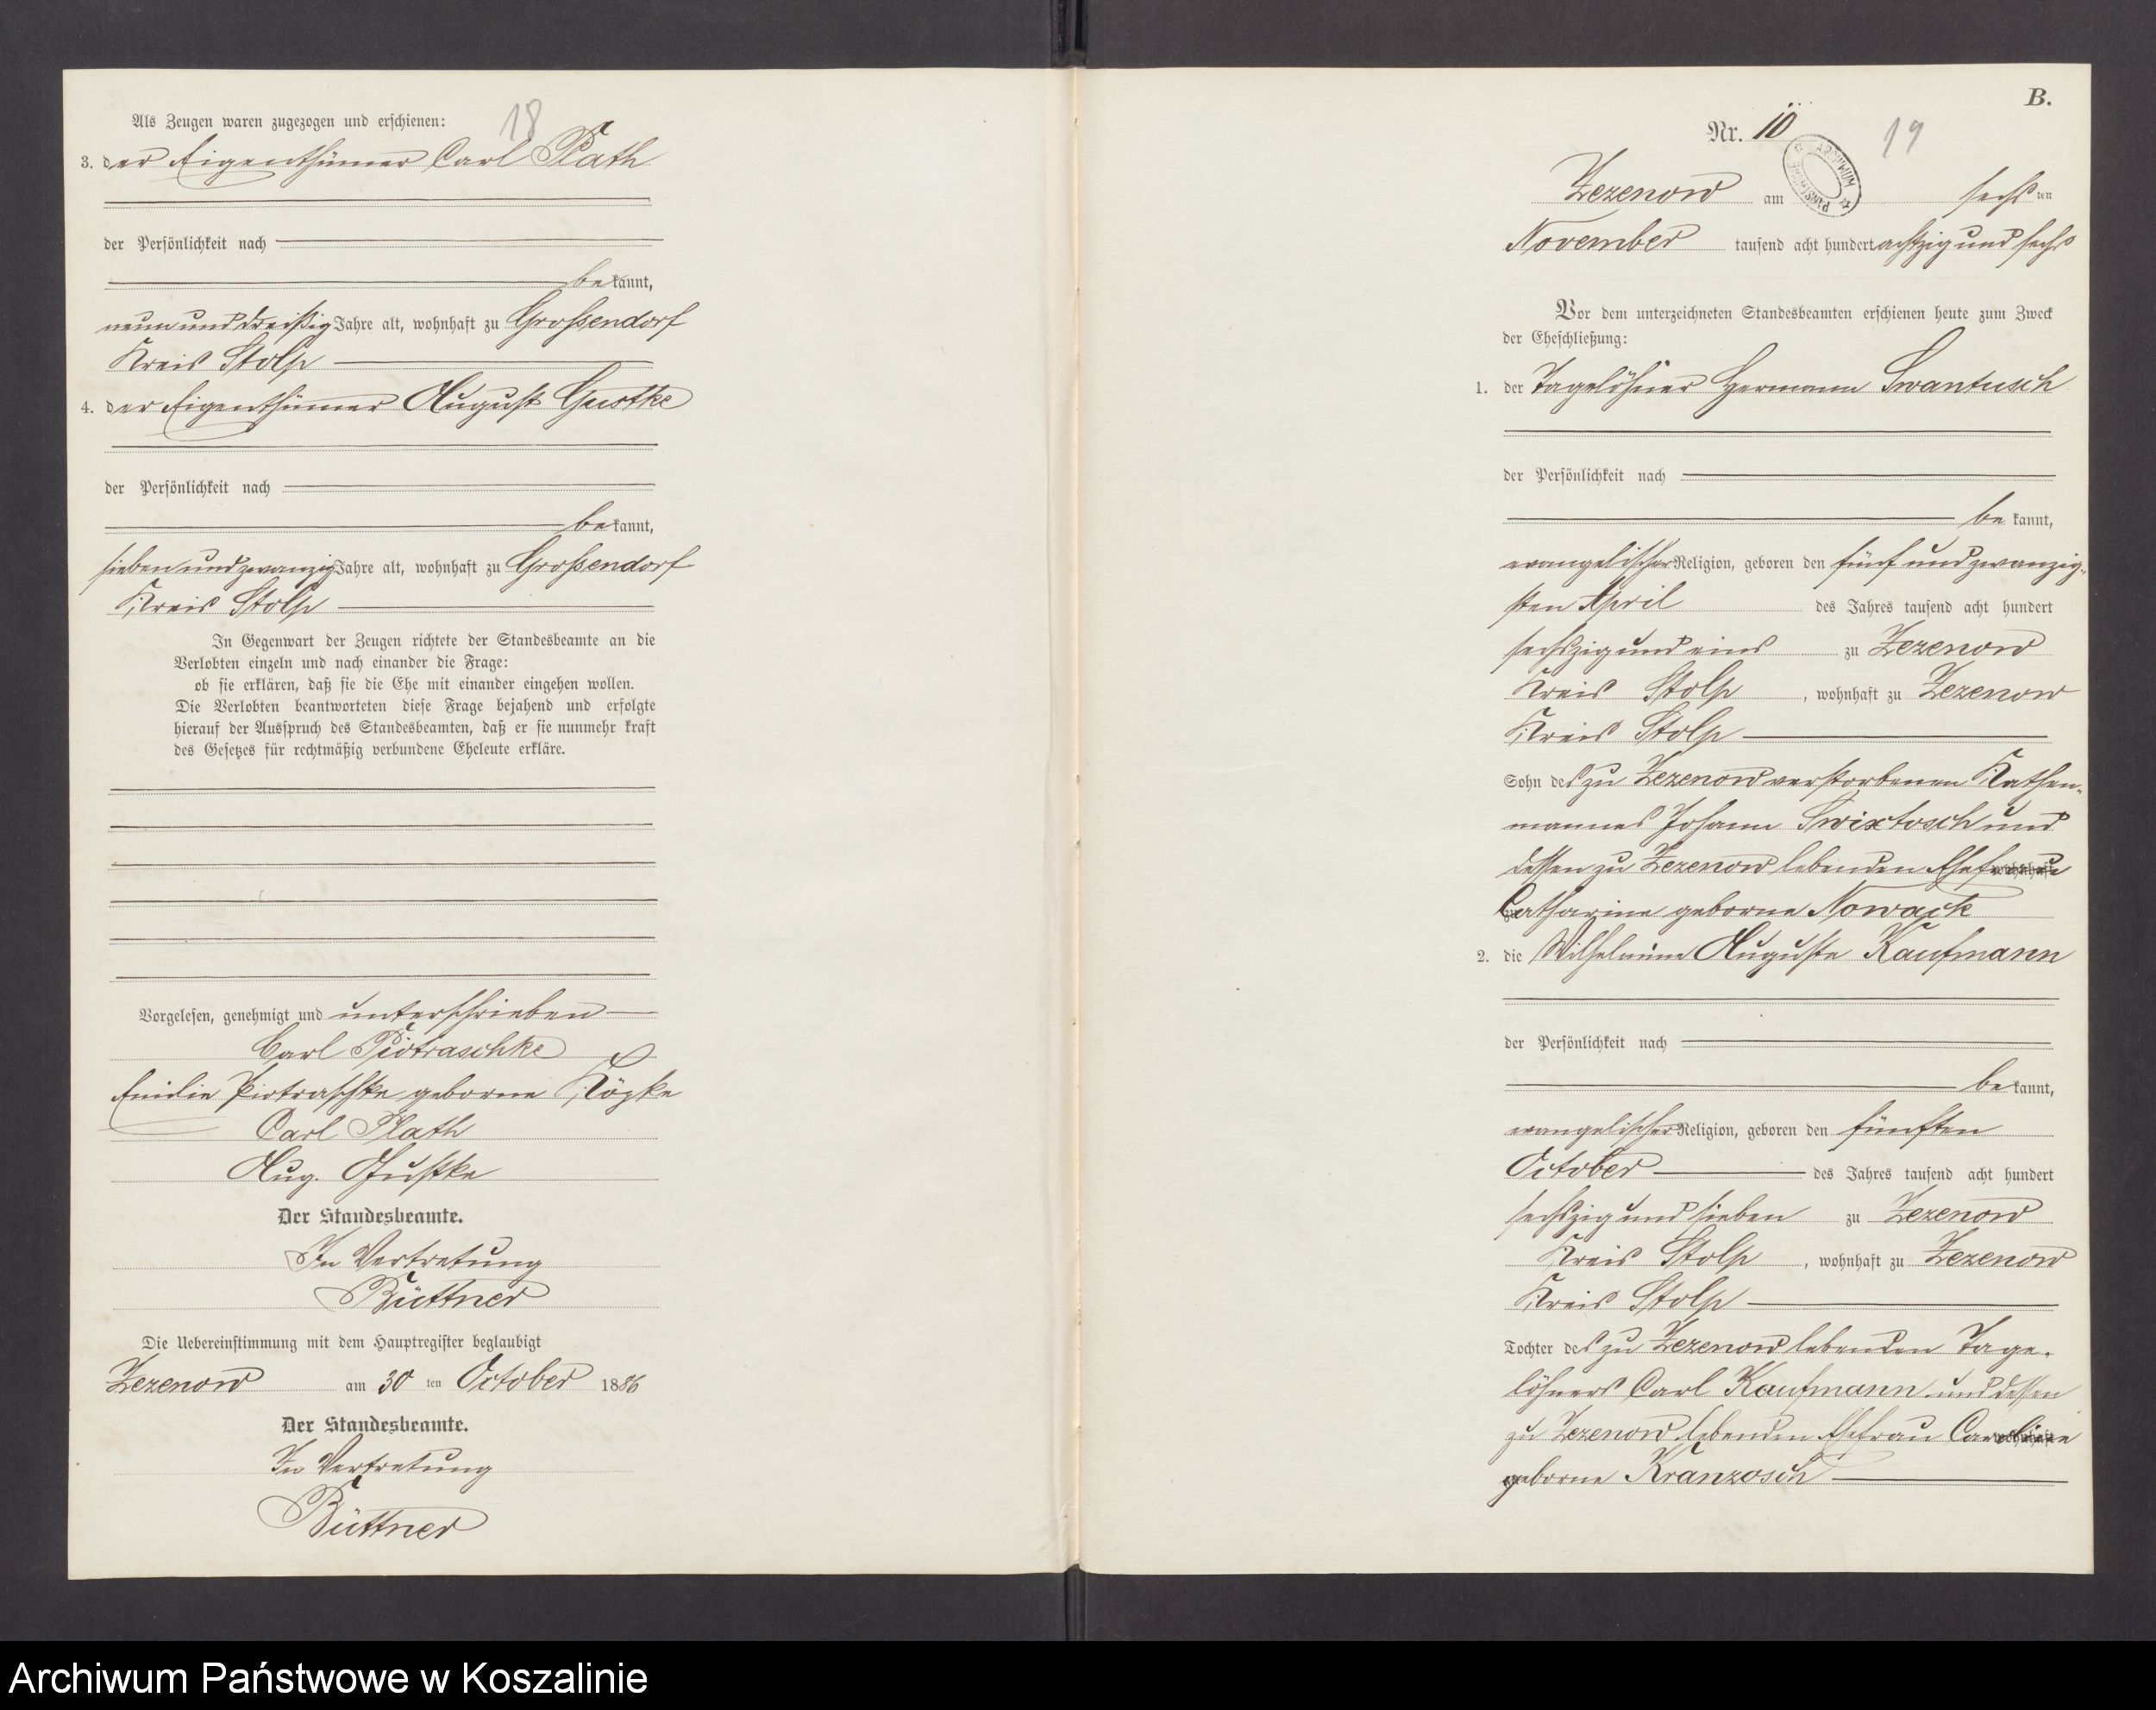 18
Als Zeugen waren zugezogen und erschienen:
3. der Eigenthümer Carl Plath
der Persönlichkeit nach
be kannt,
neun und dreißig Jahre alt, wohnhaft zu Großendorf
Kreis Stolp
4. der Eigenthümer August Gustke
der Persönlichkeit nach
be kannt,
sieben und zwanzig Jahre alt, wohnhaft zu Großendorf
Kreis Stolp
In Gegenwart der Zeugen richtete der Standesbeamte an die
Verlobten einzeln und nach einander die Frage:
ob sie erklären, daß sie die Ehe mit einander eingehen wollen.
Die Verlobten beantworteten diese Frage bejahend und erfolgte
hierauf der Ausspruch des Standesbeamten, daß er sie nunmehr kraft
des Gesetzes für rechtmäßig verbundene Eheleute erkläre.
Vorgelesen, genehmigt und unterschrieben
Carl Piotraschke
Emilie Piotraschke geborne Köpke
Carl Plath
Aug. Gustke
Der Standesbeamte.
In Vertretung
Büttner
Die Uebereinstimmung mit dem Hauptregister beglaubigt
Zezenow am 30 ten October 1886
Der Standesbeamte.
In Vertretung
Büttner
B.
Nr. 10
19
Zezenow am sechs ten
November tausend acht hundert achtzig und sechs
Vor dem unterzeichneten Standesbeamten erschienen heute zum Zweck
der Eheschließung:
1. der Tagelöhner Hermann Swantusch
der Persönlichkeit nach
be kannt,
evangelischer Religion, geboren den fünf und zwanzig-
sten April des Jahres tausend acht hundert
sechszig und eins zu Zezenow
Kreis Stolp, wohnhaft zu Zezenow
Kreis Stolp
Sohn des zu Zezenow verstorbenen Kathen-
mannes Johann Swixtosch und
dessen zu Zezenow lebenden Ehefrau
Catharine geborne Nowack
2. die Wilhelmine Auguste Kaufmann
der Persönlichkeit nach
be kannt,
evangelischer Religion, geboren den fünften
October des Jahres tausend acht hundert
sechszig und sieben zu Zezenow
Kreis Stolp, wohnhaft zu Zezenow
Kreis Stolp
Tochter des zu Zezenow lebenden Tage-
löhners Carl Kaufmann und dessen
zu Zezenow lebenden Ehefrau Caroline
geborne Kranzosch
Archiwum Państwowe w Koszalinie